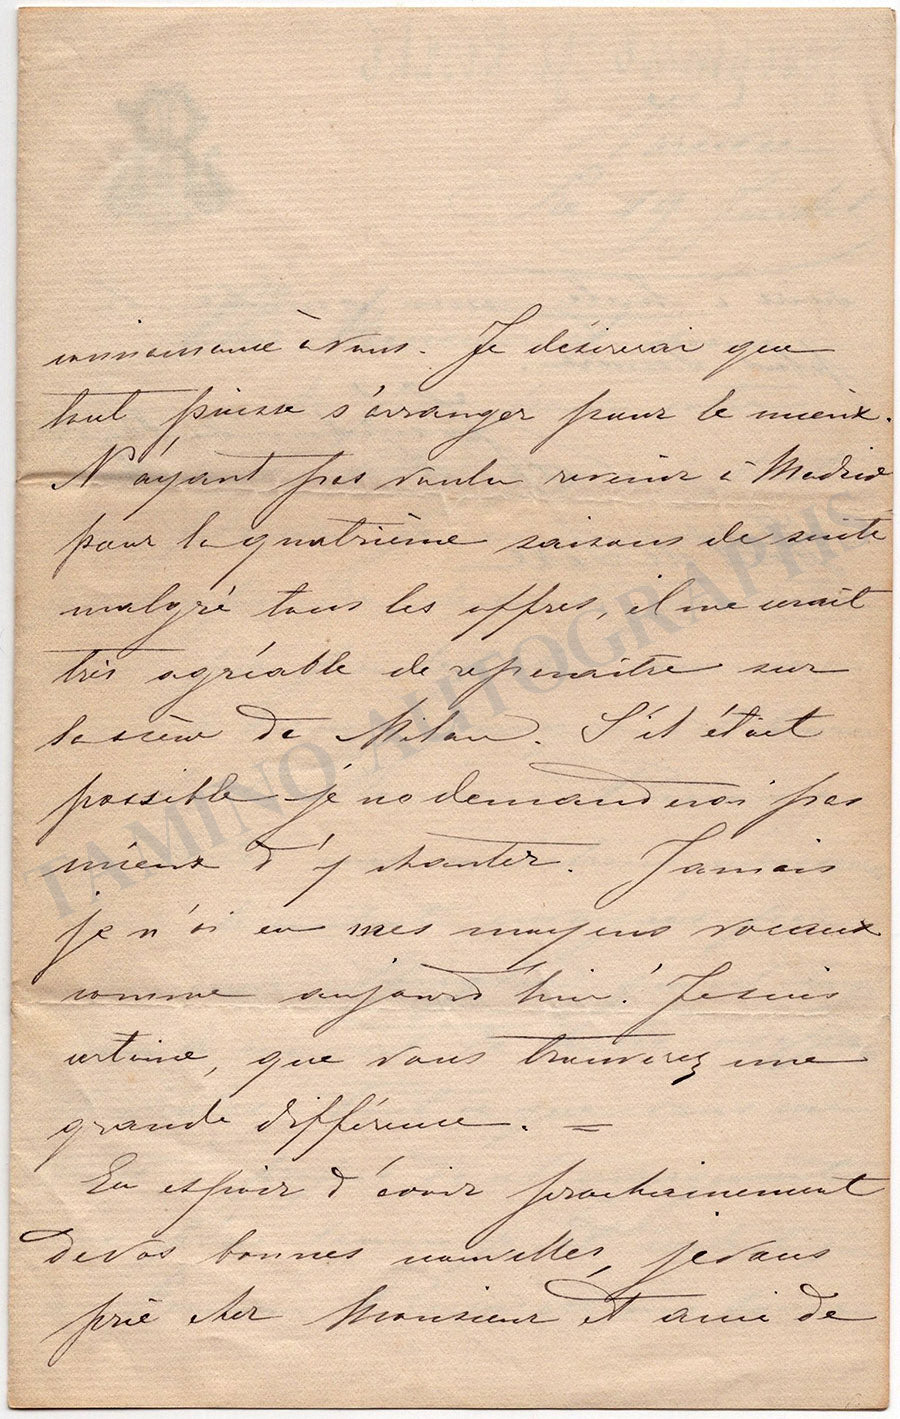 connaissance à vous. Je désirerai que
tout puisse s'arranger pour le mieux.
N'ayant pas voulu revenir à Madrid
pour la quatrième saisons de suite
malgré tous les offres, il me serait
très agréable de reparaître sur
la scène de Milan. S'il était
possible je ne demanderai pas
mieux d'y chanter. Jamais
je n'ai eu mes moyens vocaux
comme aujourd'hui! Je suis
certaine, que vous trouverez une
grande différence. =
En espoir d'avoir prochainement
de vos bonnes nouvelles, je vous
prie cher Monsieur et ami de
TAMINO AUTOGRAPHS